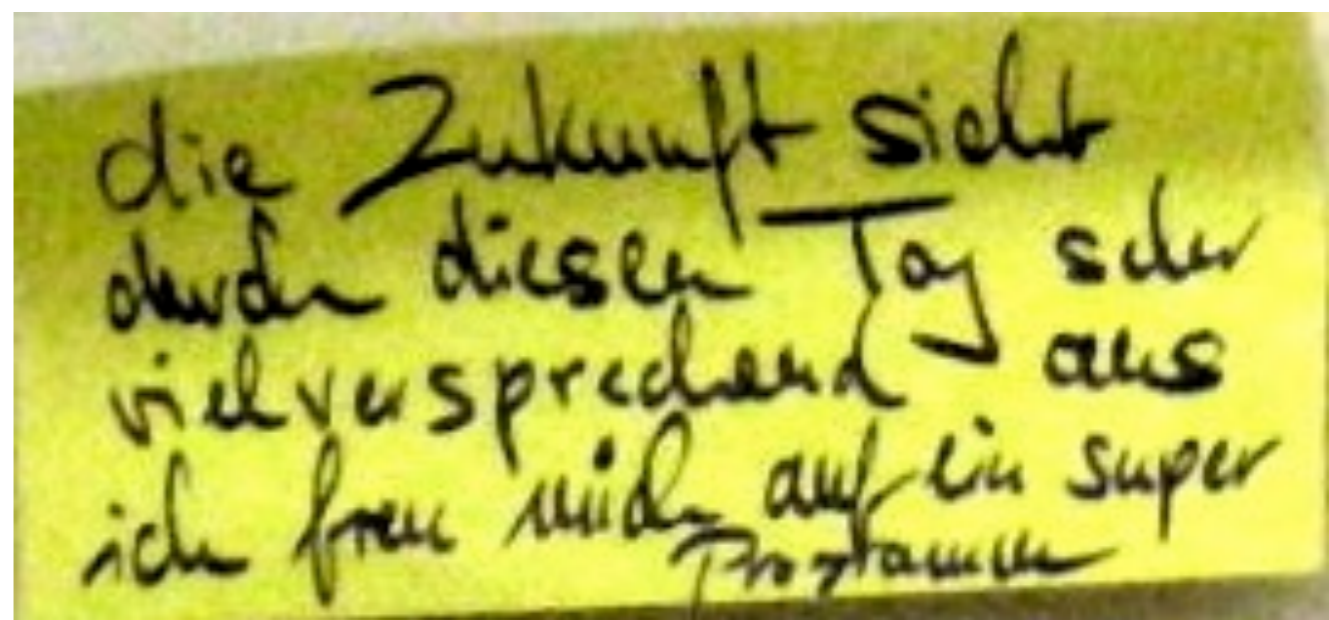 die Zukunft sieht
durch diesen Tag sehr
vielversprechend aus
ich freu mich auf ein super
Programm